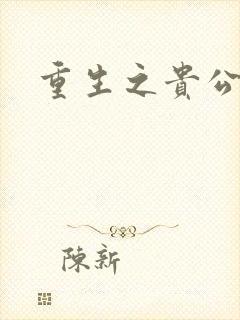 重生之貴公
陳新